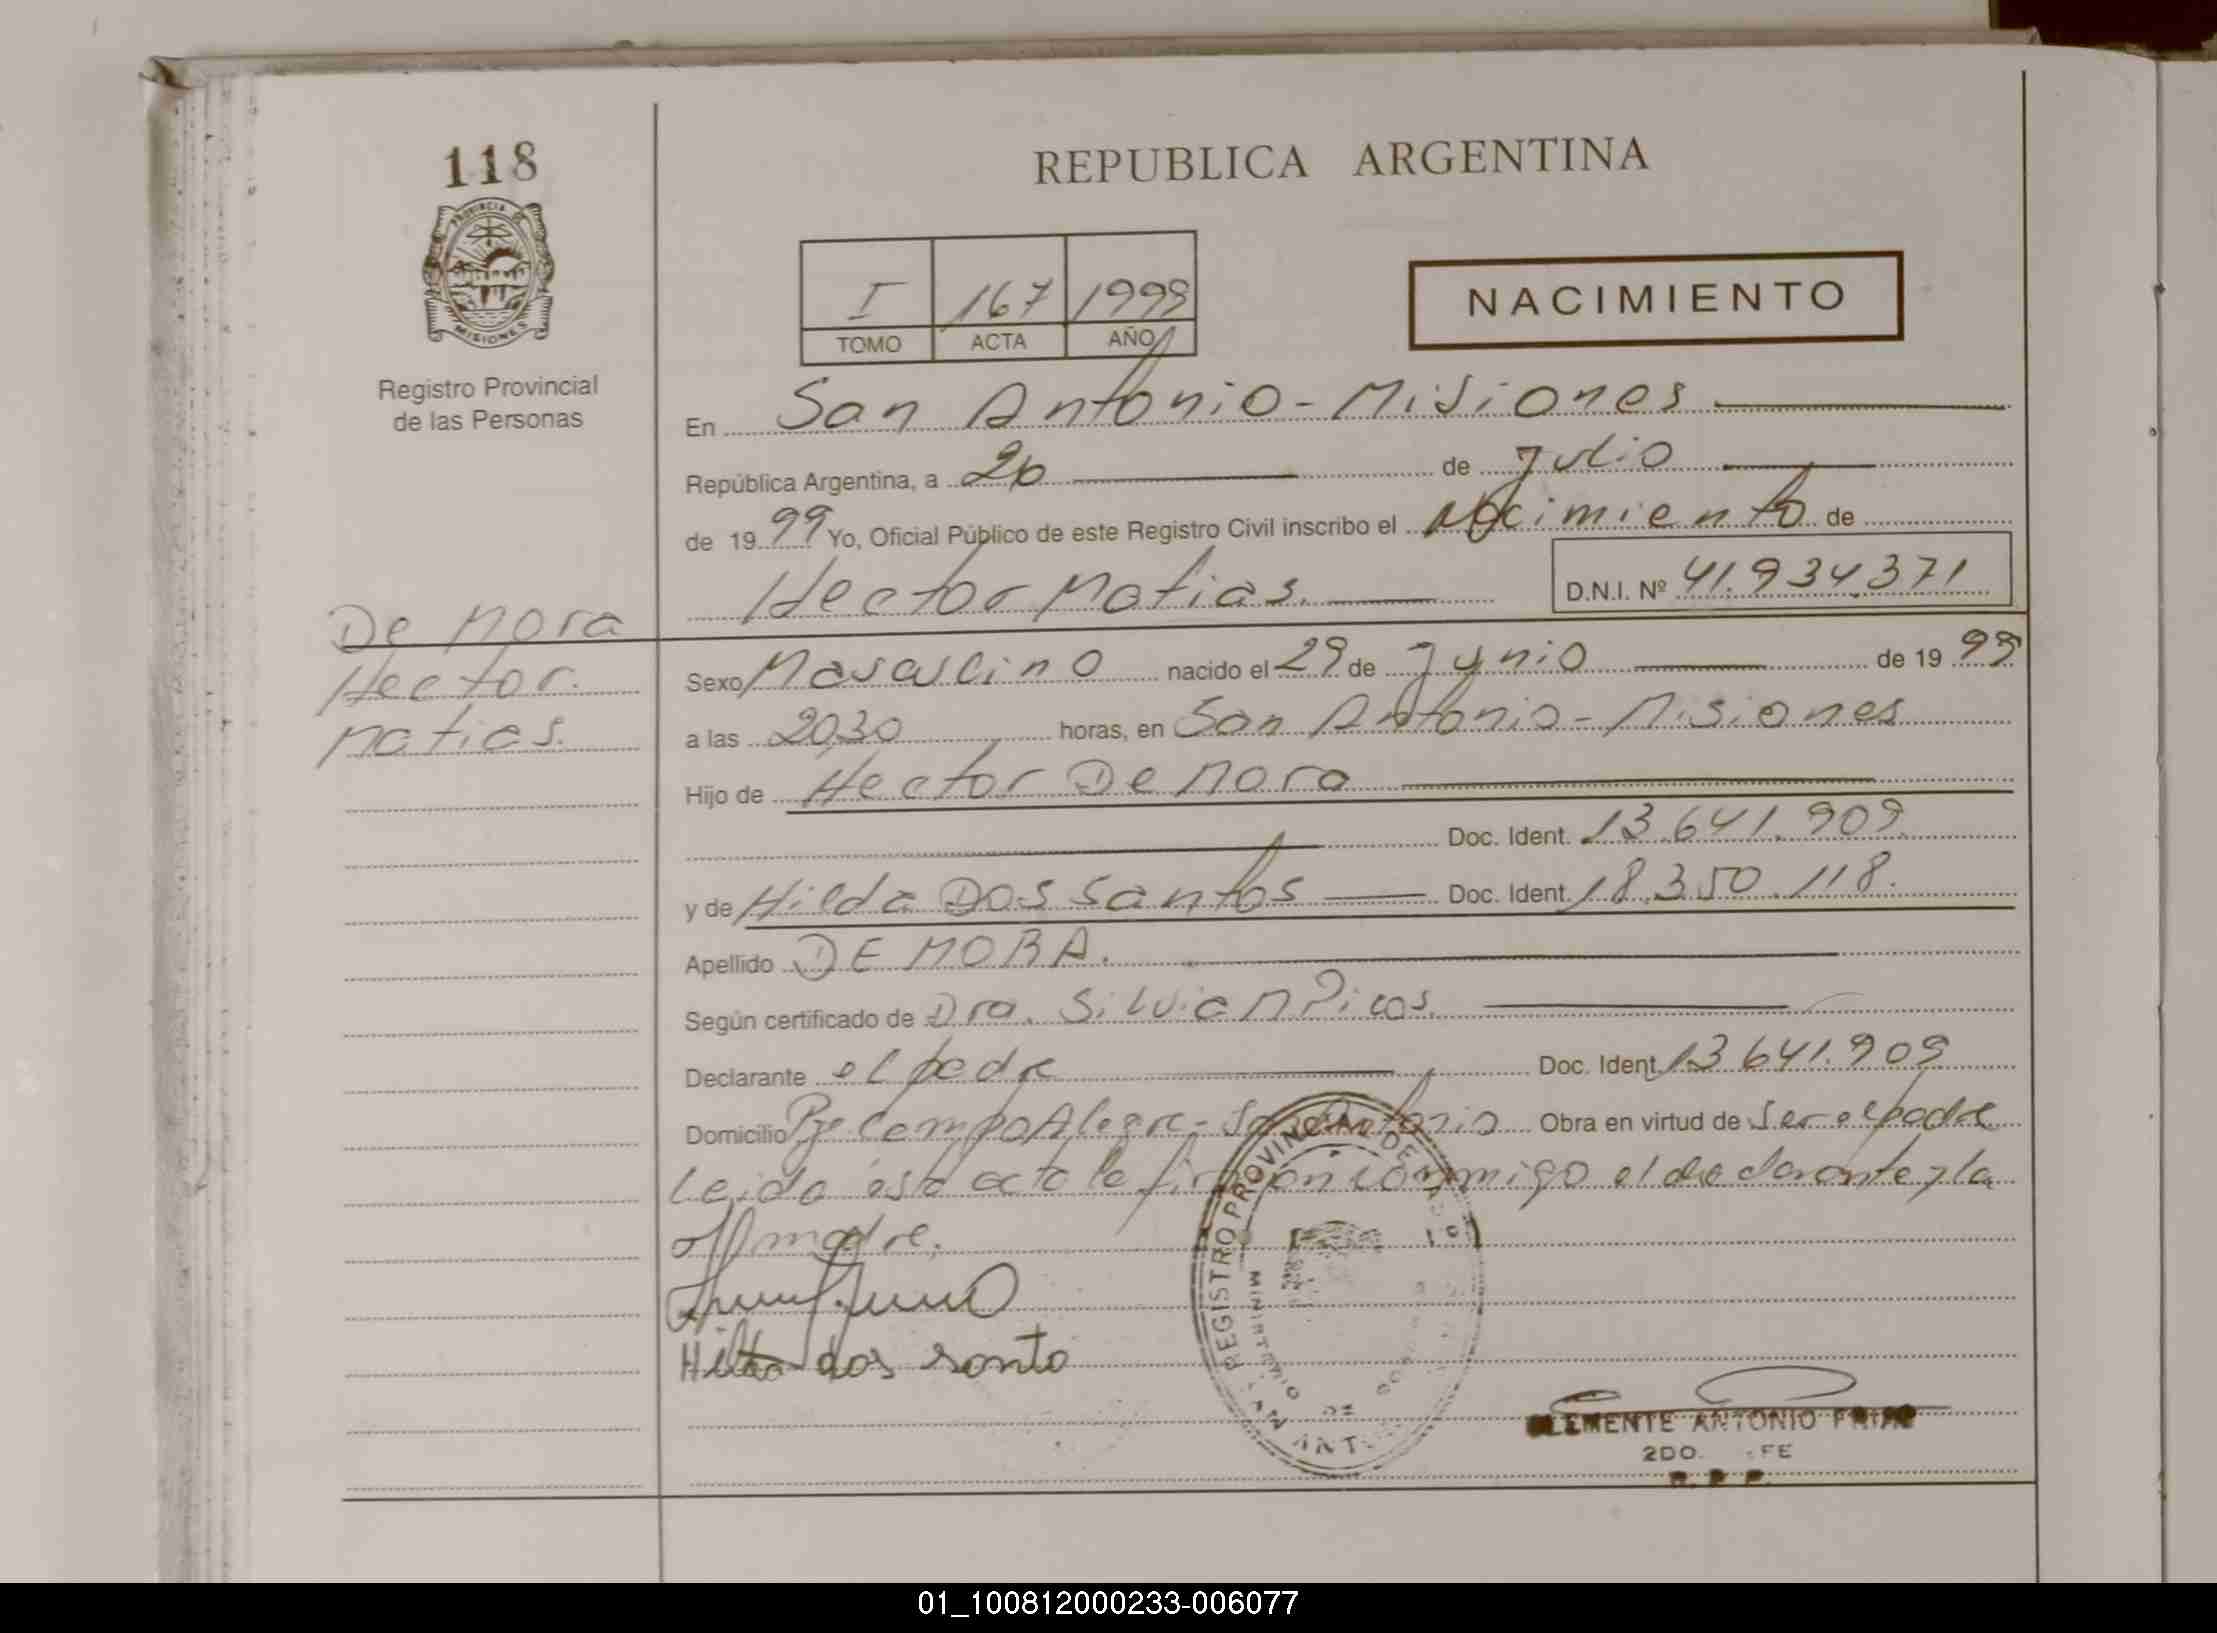 118
PROVINCIA DE
MISIONES
Registro Provincial
de las Personas
REPUBLICA ARGENTINA
I 167 1999
TOMO ACTA AÑO
NACIMIENTO
En San Antonio - Misiones
República Argentina, a 20 de Julio
de 1999 Yo, Oficial Público de este Registro Civil inscribo el Nacimiento de
Hector Matias. D.N.I. Nº 41.934.371
De Mora
Hector
Matias.
Sexo Masculino nacido el 29 de Junio de 1999
a las 20,30 horas, en San Antonio - Misiones
Hijo de Hector De Mora
Doc. Ident. 13.641.909
y de Hilda Dos Santos Doc. Ident. 18.350.118.
Apellido DE MORA.
Según certificado de Dra. Silvia M Picos.
Declarante el padre Doc. Ident. 13.641.909
Domicilio Pje Campo Alegre - San Antonio Obra en virtud de Ser el padre
Leida esta acta la firman conmigo el declarante y la
madre.
Hilda dos santo
REGISTRO PROVINCIAL DE
MINISTERIO DE
CLEMENTE ANTONIO FRIAS
2DO. FE
R. P. P.
01_100812000233-006077